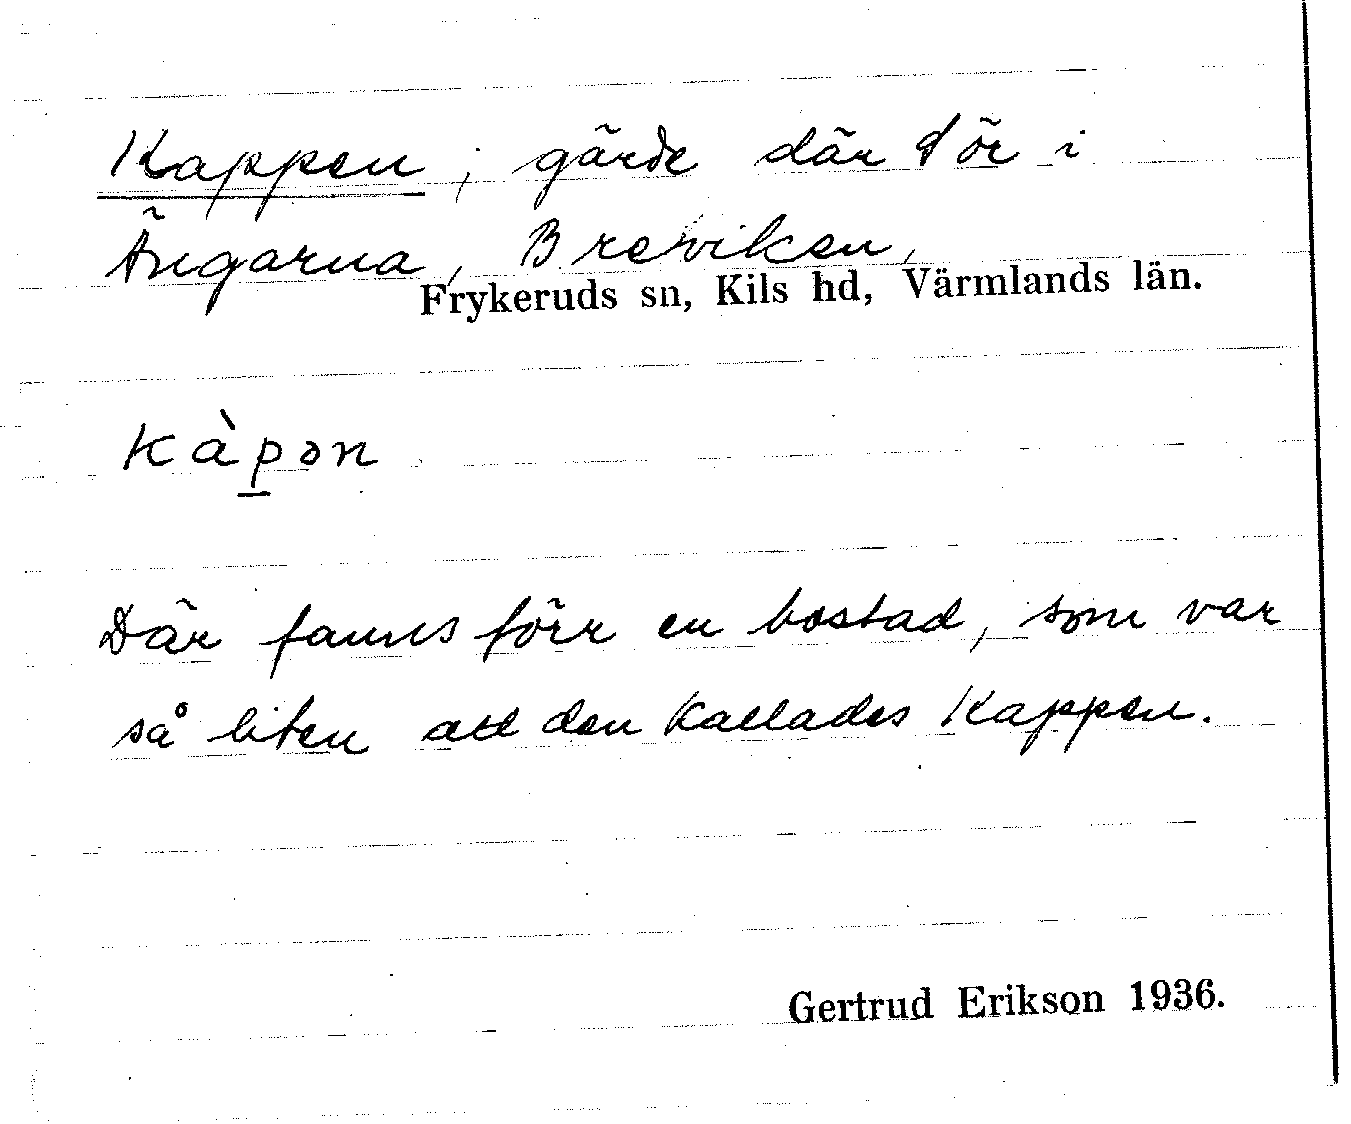 Kappen, gärde där S ör i
Ängarna, Breviken,
Frykeruds sn, Kils hd, Värmlands län.
kàpən
Där fanns förr en bostad, som var
så liten att den kallades Kappen.
Gertrud Erikson 1936.